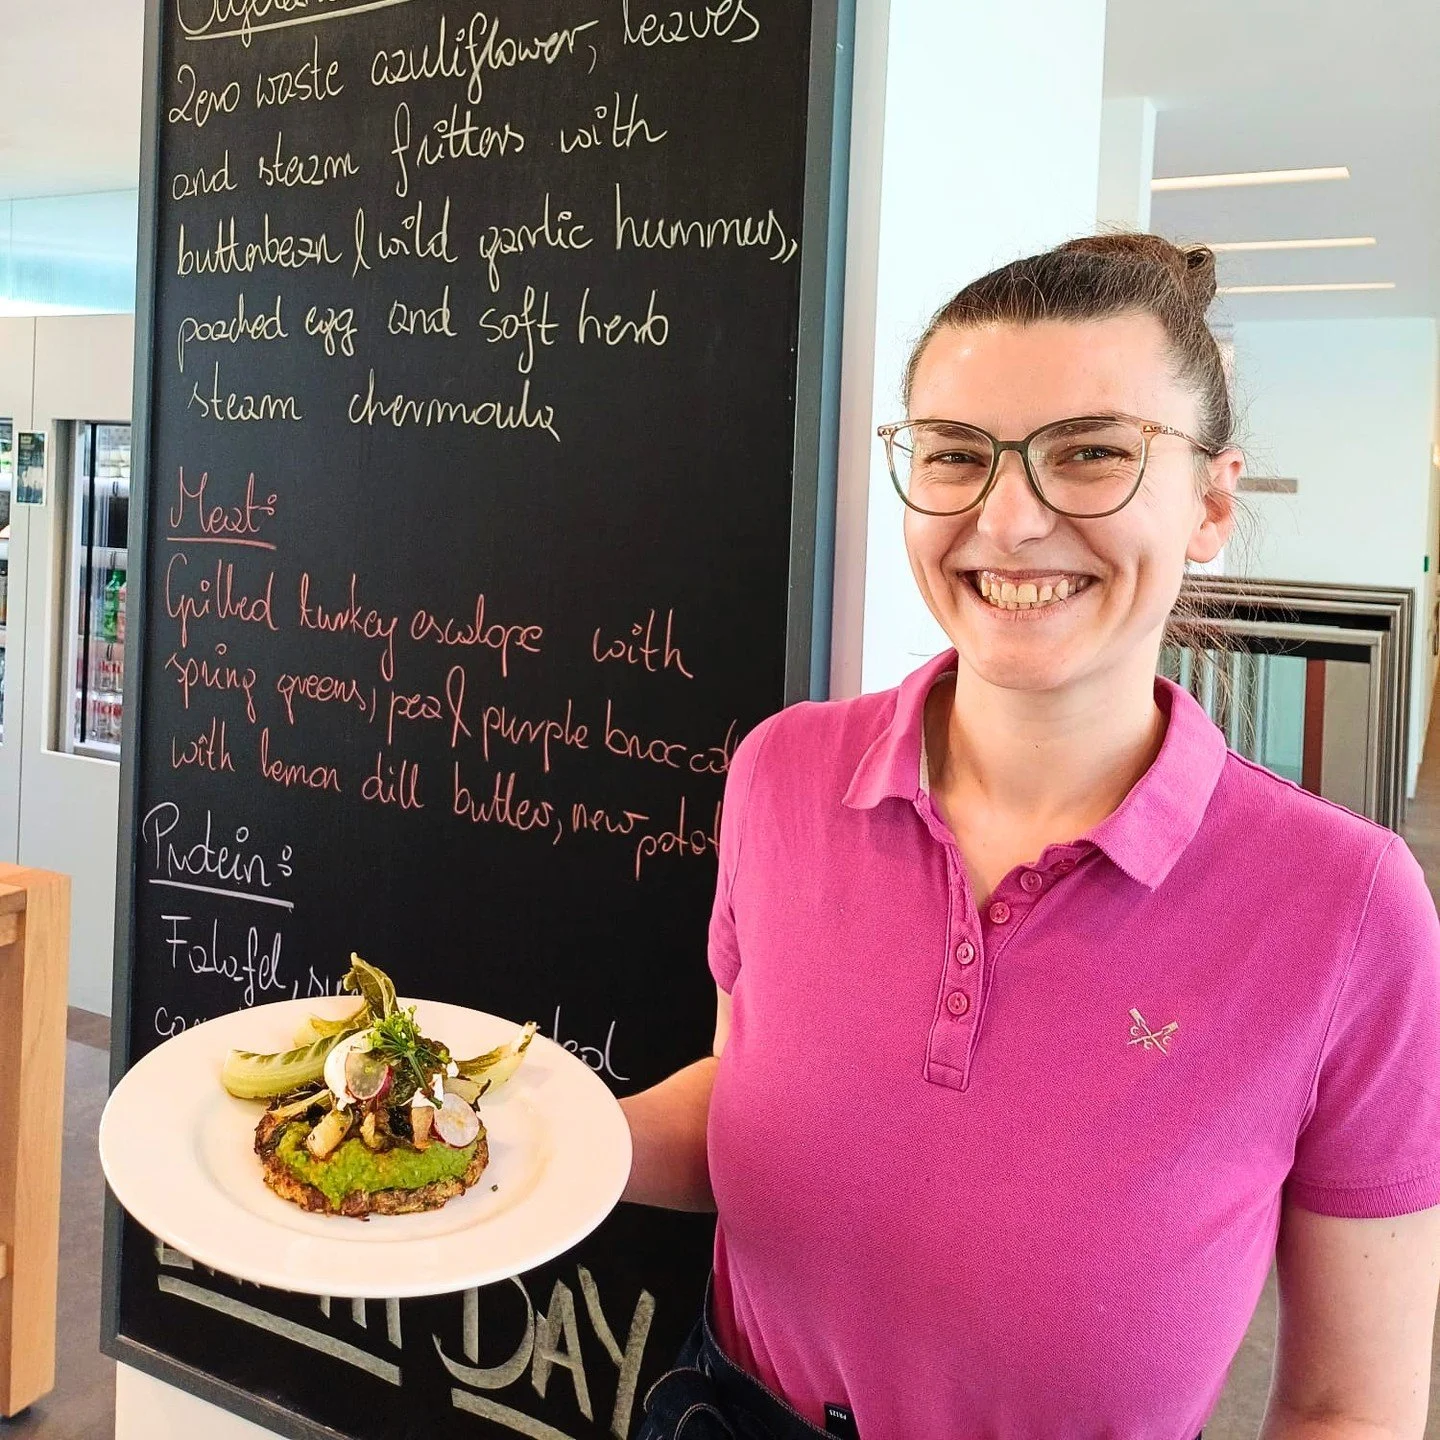 Zero waste cauliflower, leaves
and steam fritters with
butterbean & wild garlic hummus,
poached egg and soft herb
steam chermoula
Meat:
Grilled turkey escalope with
spring greens, pea & purple brocco
with lemon dill butter, new
potat
Protein:
Falafel, su
DAY